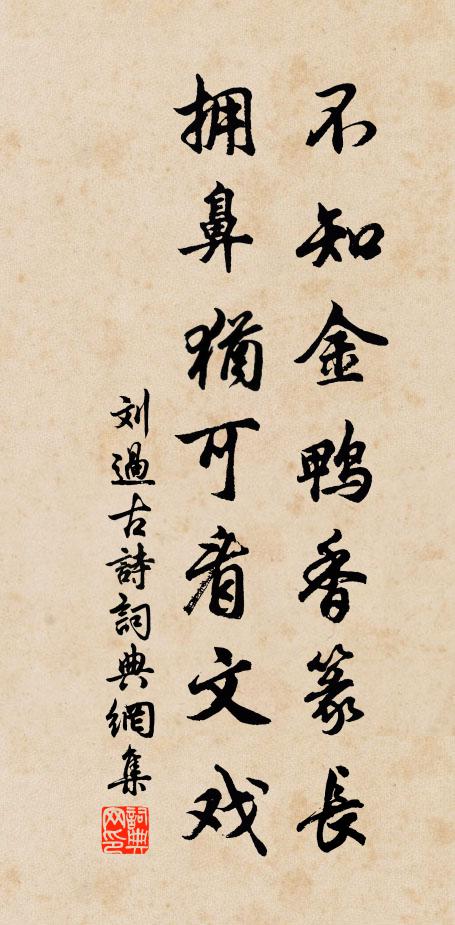 不知金鸭香篆長
拥鼻猶可看文戏
刘過古詩詞典網集
詞典網印